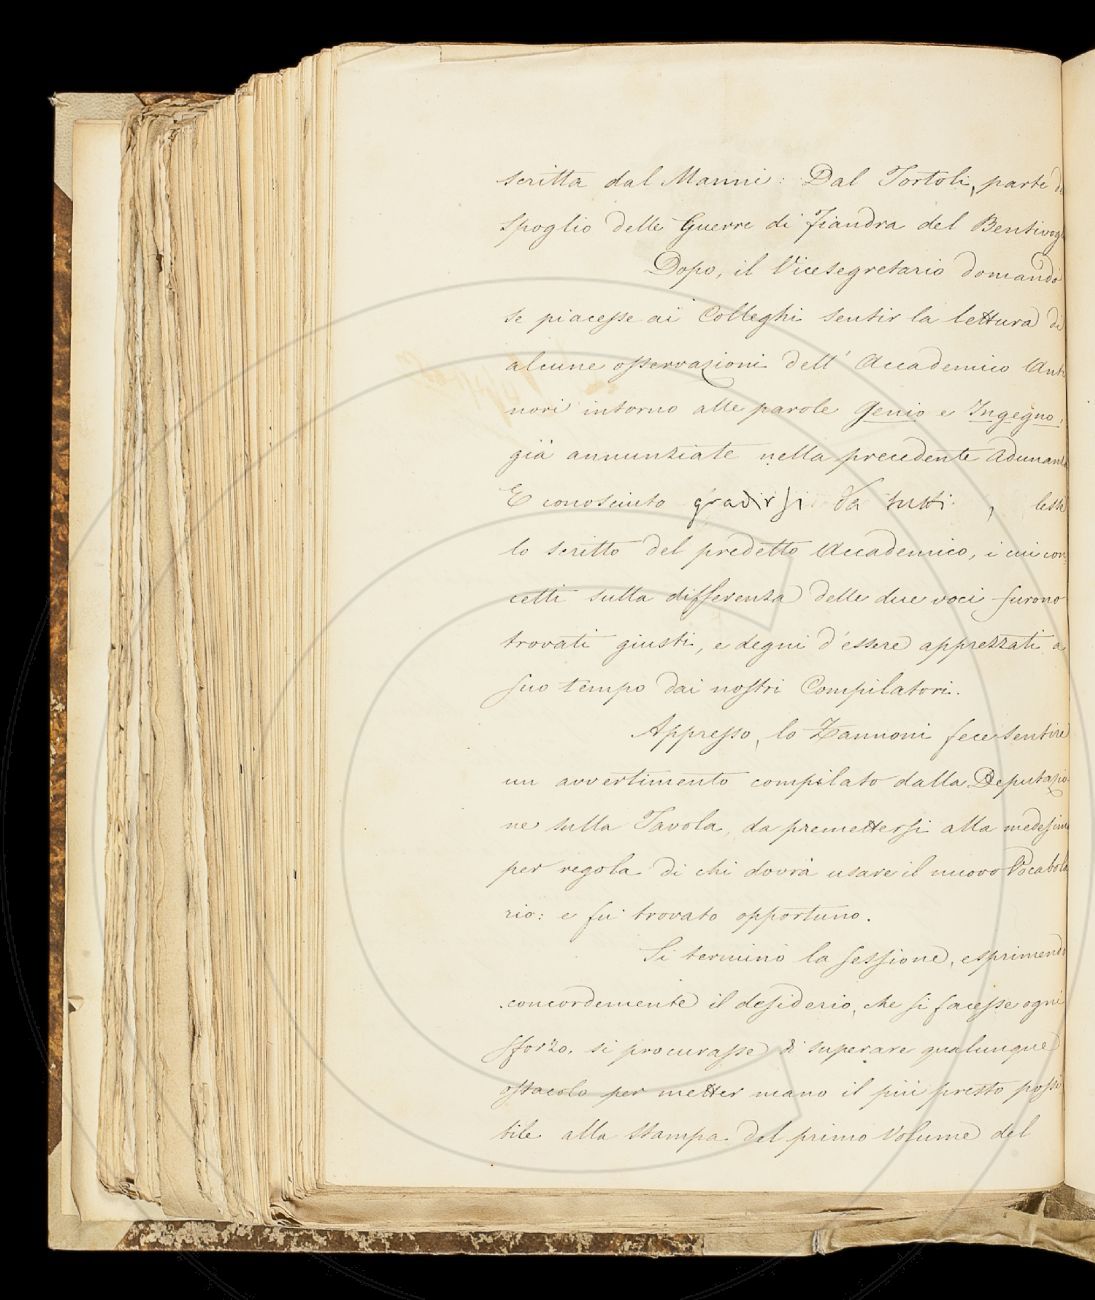 scritta dal Manni: Dal Tortoli, parte di
spoglio delle Guerre di Fiandra del Bentivogl
Dopo, il Vicesegretario domandò
se piacesse ai Colleghi sentir la lettura di
alcune osservazioni dell' Accademico Anti
nori intorno alle parole Genio e Ingegno,
già annunziate nella precedente Adunanz
E conosciuto gradirsi da tutti, lesse
lo scritto del predetto Accademico, i cui con
cetti sulla differenza delle due voci furono
trovati giusti, e degni d'essere apprezzati a
suo tempo dai nostri Compilatori.
Appresso, lo Zannoni fece sentire
un avvertimento compilato dalla Deputazio
ne sulla Tavola, da premettersi alla medesima
per regola di chi dovrà usare il nuovo Vocabola
rio: e fu trovato opportuno.
Si terminò la sessione, esprimendo
concordemente il desiderio, che si facesse ogni
sforzo, si procurasse di superare qualunque
ostacolo per metter mano il più presto possi
bile alla stampa del primo Volume del